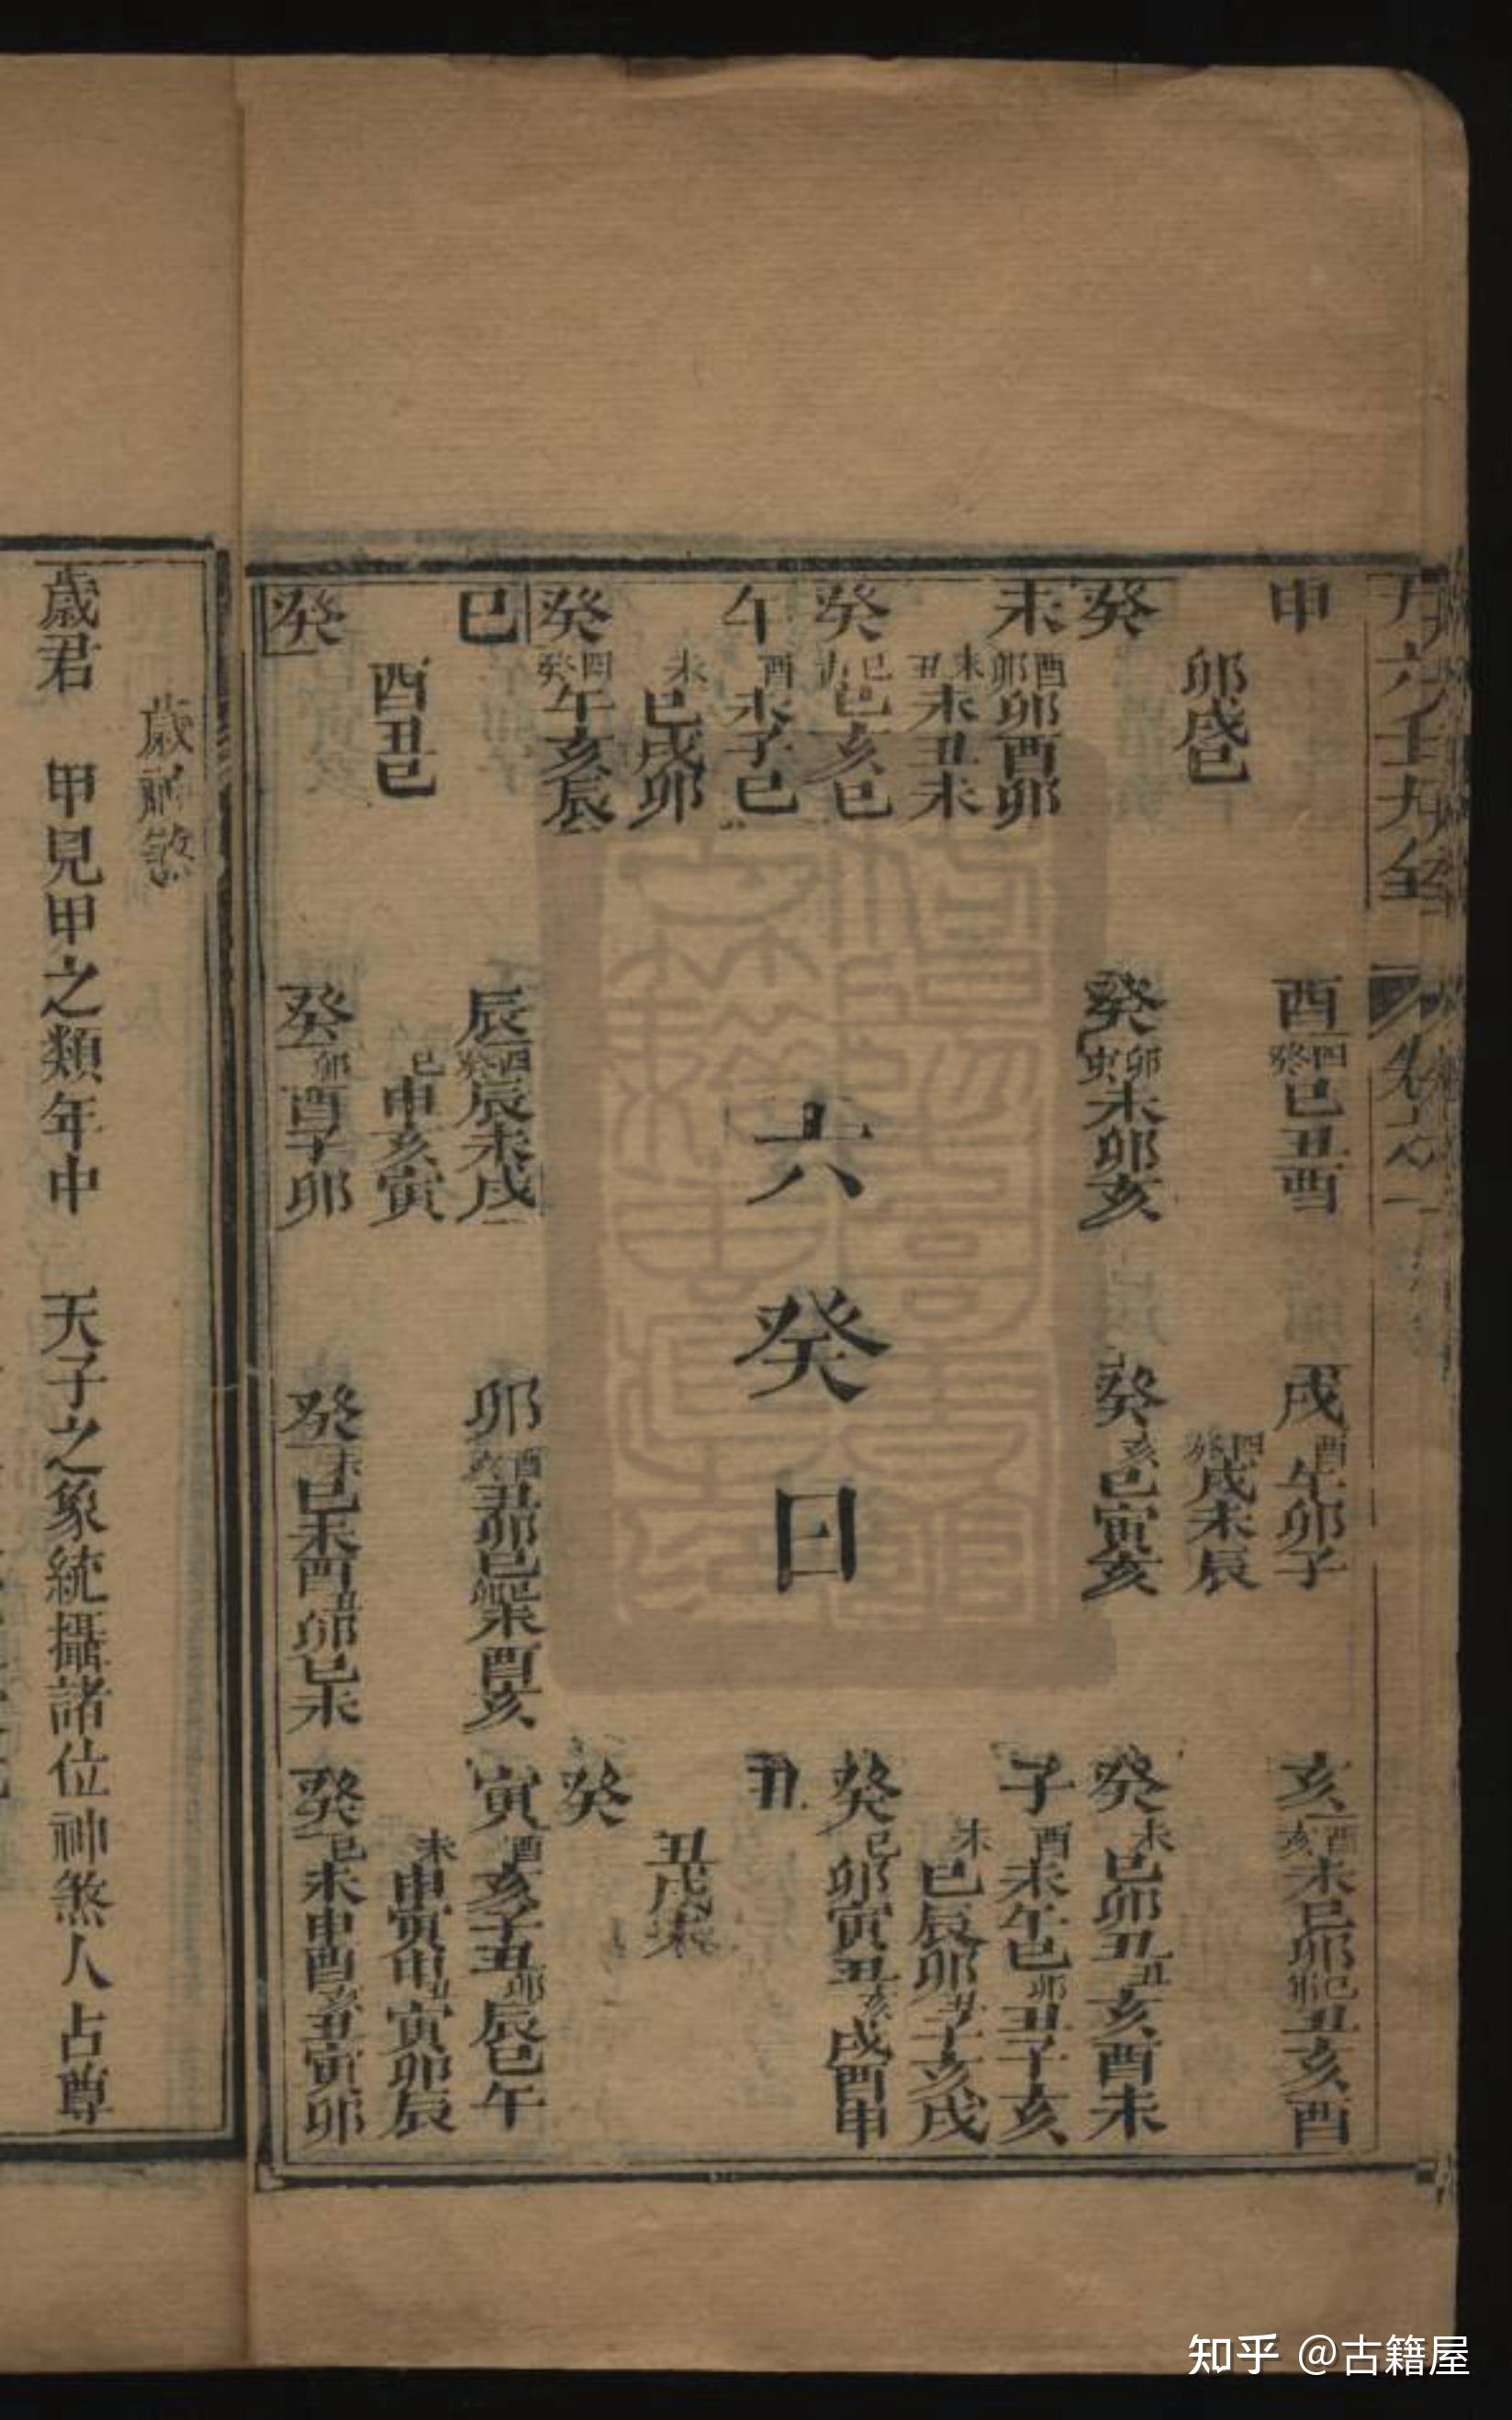 申
卯戌巳
癸
未
酉卯卯酉卯
未丑未丑未
癸
巳亥巳
午
酉未子巳
未巳戌卯
癸
四癸午亥辰
巳
酉丑巳
癸
酉
四癸巳丑酉
癸
未卯亥
辰
四癸辰未戌
巳申亥寅
癸
卯酉子卯
六癸日
戌
酉午卯子
四癸戌未辰
癸
亥巳寅亥
卯
丑卯巳
未酉亥
癸
未巳未酉丑卯巳未
亥
酉亥未巳卯巳卯丑亥酉
癸
未巳卯丑丑亥酉未
子
酉未午巳卯丑子亥
未巳辰卯丑子亥戌
癸
巳卯寅丑亥戌酉申
丑
丑戌未
癸
寅
酉亥子丑卯辰巳午
未申寅申丑寅卯辰
癸
巳未申酉亥丑寅卯
歲君 甲見甲之類年中 天子之象統攝諸位神煞人占尊
知乎 @古籍屋